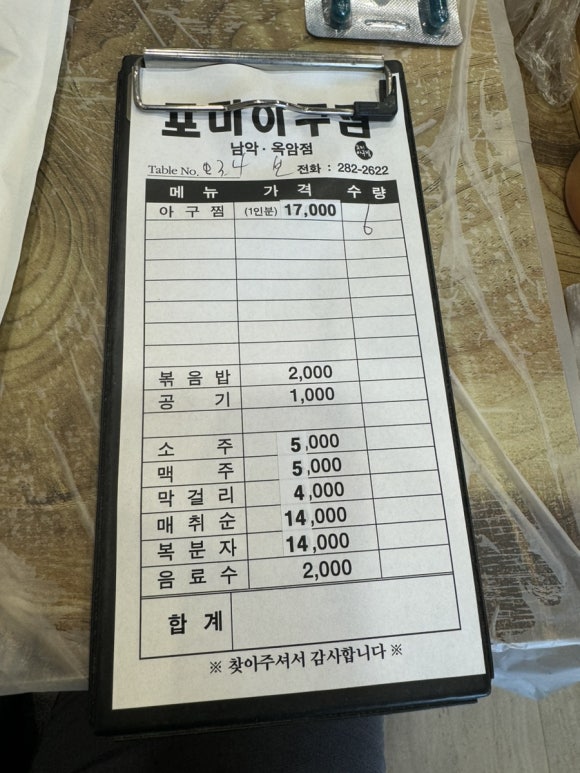 포미아구찜
남악·옥암점
Table No. 2 3. 4 전화 : 282-2622
메뉴 가격 수량
아구찜 (1인분) 17,000 6
볶음밥 2,000
공기 1,000
소주 5,000
맥주 5,000
막걸리 4,000
매취순 14,000
복분자 14,000
음료수 2,000
합계
※ 찾아주셔서 감사합니다 ※